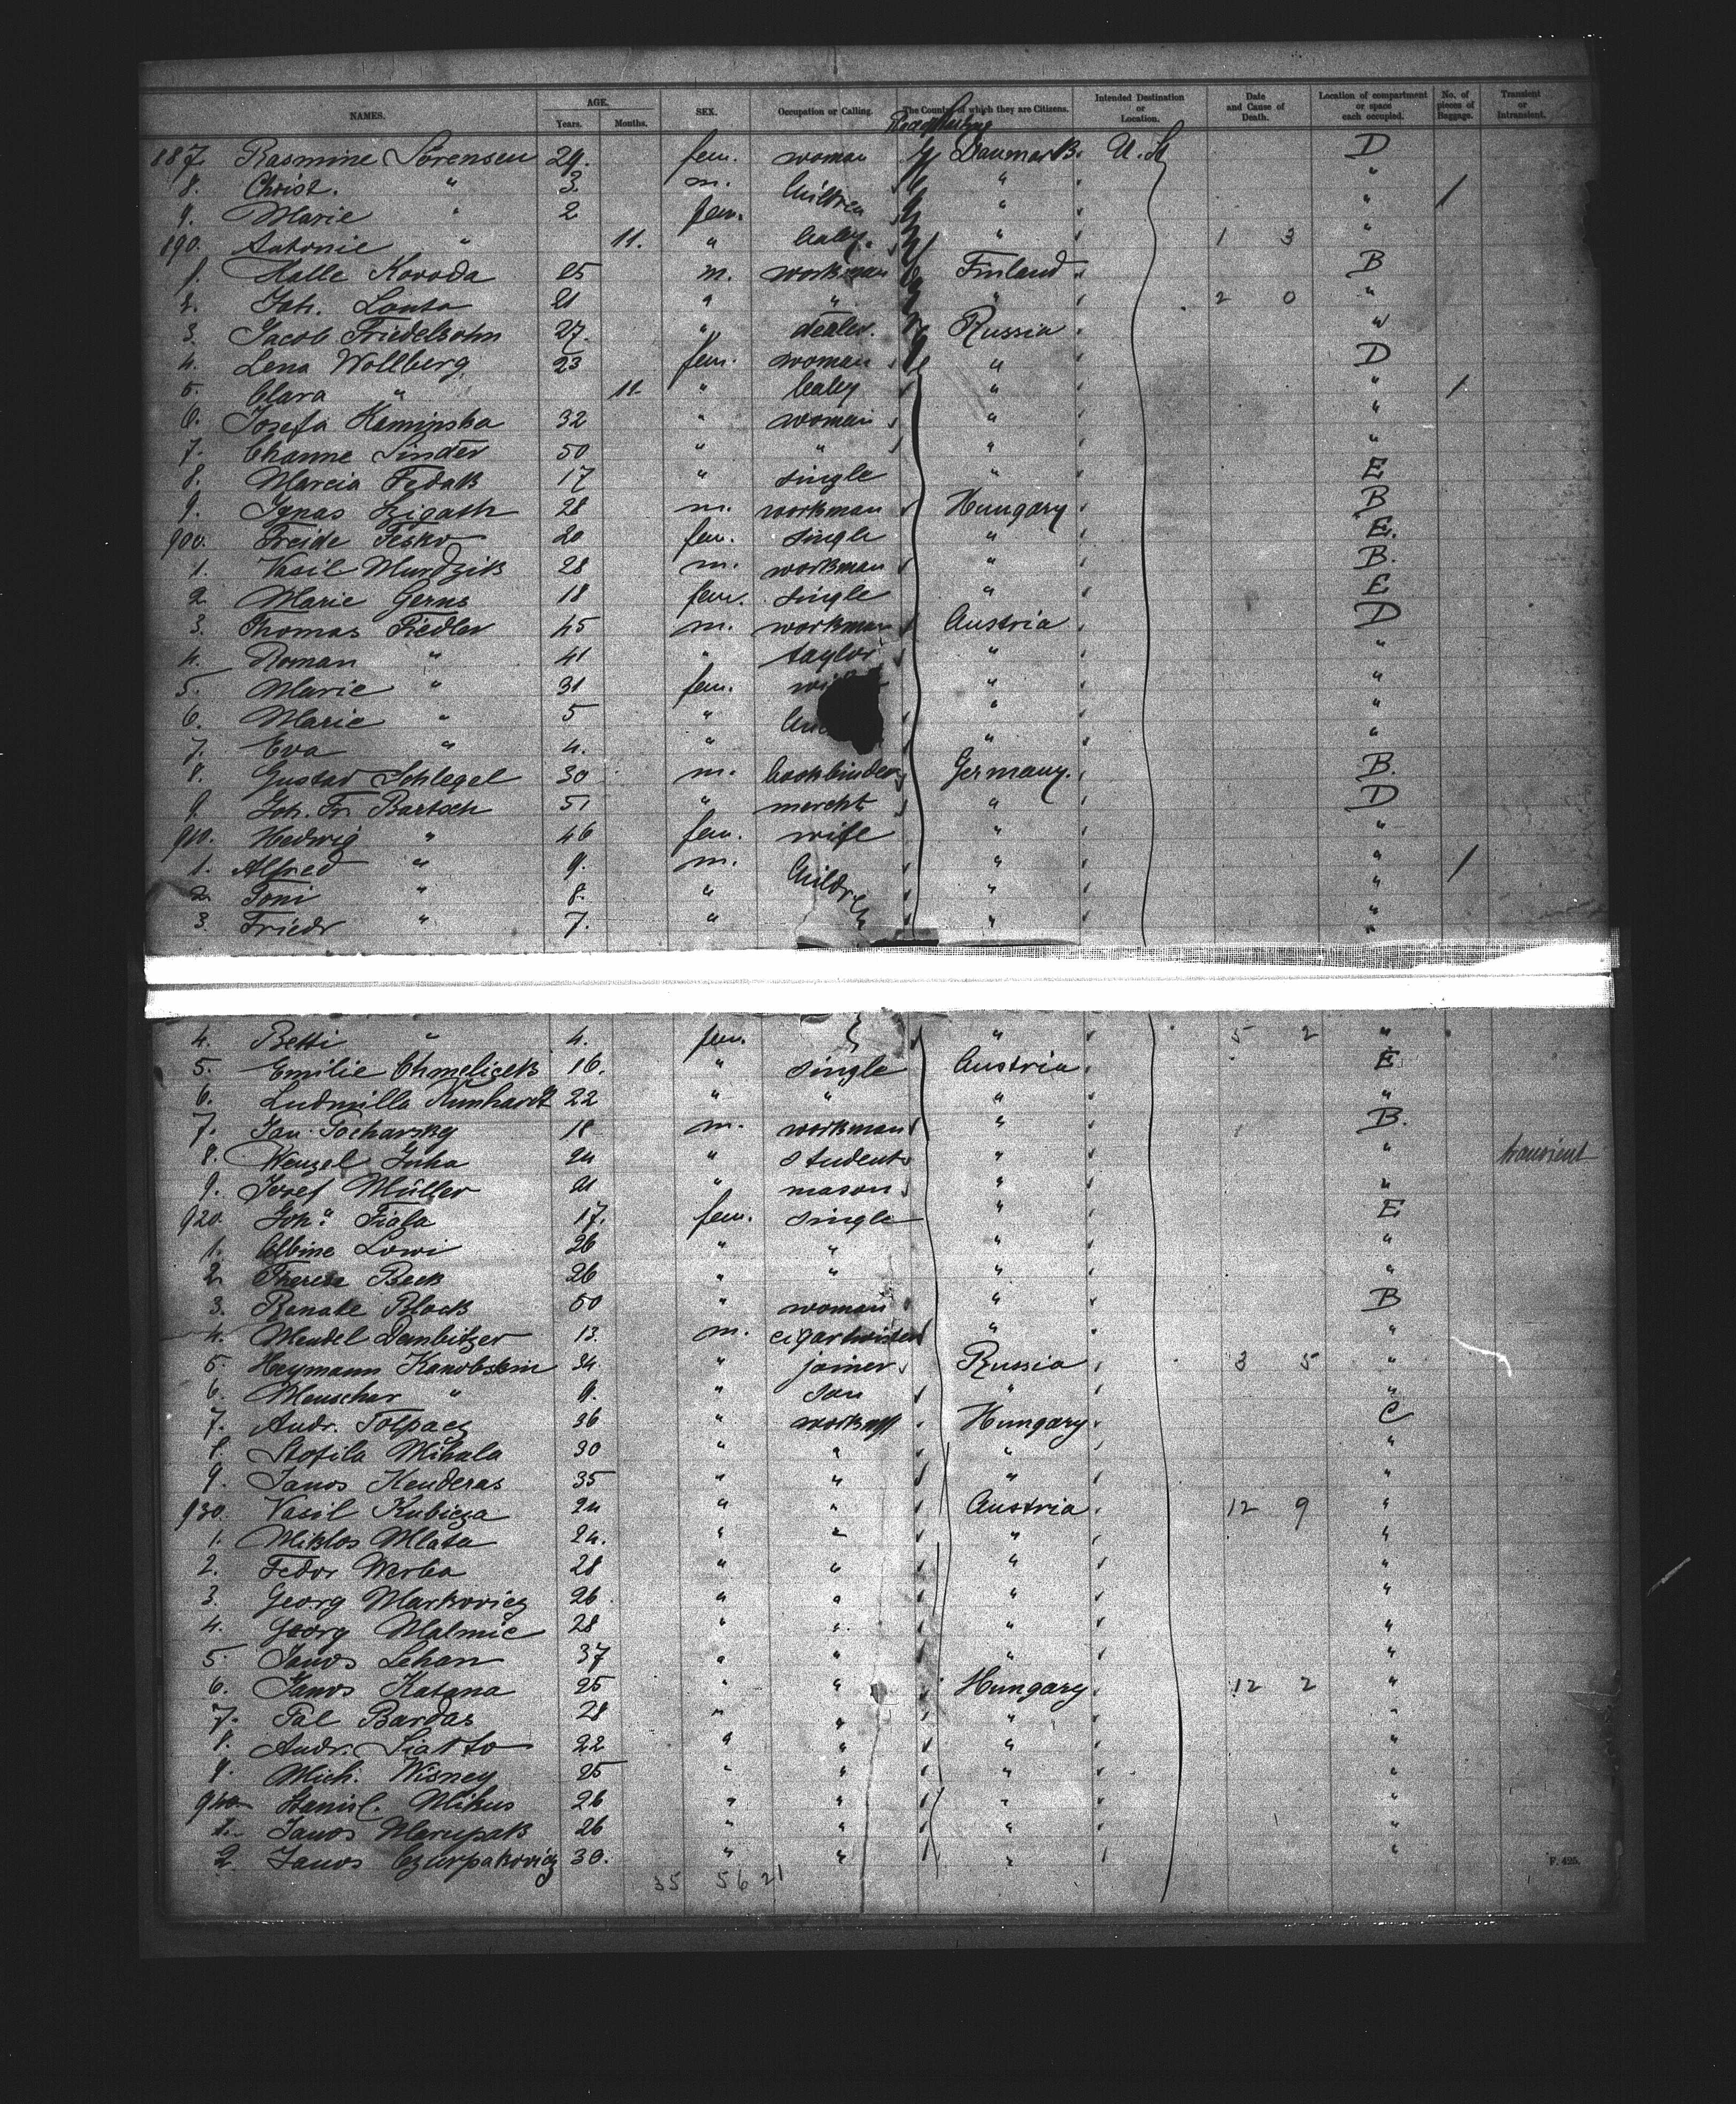 NAMES. AGE. Years. Months. SEX. Occupation or Calling. The Country of which they are Citizens. Intended Destination or Location. Date and Cause of Death. Location of compartment or space each occupied. No. of pieces of Baggage. Transient or Intransient.
887. Rasmine Sörensen 29. fem. woman Danmark. U. St D
8. Christ. " 3. m. children " "
9. Marie " 2 fem. " " 1
890. Antonie " 11. " baby. " 1 3 "
1. Kalle Koroda 25 m. workman Finland B
2. Joh. Lonta 21 " " " 2 0 "
3. Jacob Friedelsohn 27. " dealer. Russia "
4. Lena Wollberg 23 fem. woman " D
5. Clara " 11. " baby " " 1
6. Josefa Kaminska 32 " woman " "
7. Channe Sinder 50 " " " "
8. Marcia Fedak 17 " single " E
9. Ignas Szigath 28 m. workman Hungary B
900. Freide Fesko 20 fem. single " E.
1. Vasil Murdzik 28 m. workman " B.
2. Marie Gerns 18 fem. single " E
3. Thomas Fiedler 45 m. workman Austria D
4. Roman " 41 " taylor " "
5. Marie " 31 fem. " "
6. Marie " 5 " " "
7. Eva " 4. " " "
8. Gustav Schlegel 30 m. bookbinder Germany. B.
9. Joh. Fr. Bartsch 51 " mercht " D
910. Hedwig " 46 fem. wife " "
1. Alfred " 9. m. children " " 1
2. Toni " 8. " " "
3. Friedr " 7. " " "
4. Betti " 4. fem. " 5 2 "
5. Emilie Chmelicek 16. " single Austria E
6. Ludmilla Kunhardt 22 " " " "
7. Jan Socharsky 18 m. workman " B.
8. Wenzel Juha 24 " student " " transient
9. Josef Müller 21 " mason " "
920. Joh.a Fiala 17. fem. single " E
1. Albine Lowi 26 " " " "
2. Therese Beck 26 " " " "
3. Renate Block 50 " woman " B
4. Mendel Dembitzer 13. m. cigartwister " "
5. Heymann Kanobstein 34 " joiner Russia 3 5 "
6. Menscher " 9. " son " "
7. Andr. Tolpacz 36 " workman Hungary C
8. Stofila Mihala 30 " " " "
9. Janos Kenderas 35 " " " "
930. Vasil Kubicza 24 " " Austria 12 9 "
1. Miklos Mlata 24. " " " "
2. Fedor Werba 28 " " " "
3. Georg Markovicz 26 " " " "
4. Georg Malmic 28 " " " "
5. Janos Lehan 37 " " " "
6. Janos Katana 25 " " Hungary 12 2 "
7. Pal Bardas 28 " " " "
8. Andr. Siatto 22 " " " "
9. Mich. Wisney 25 " " " "
940 Stanisl. Mikus 26 " " " "
1. Janos Marupak 26 " " " "
2 Janos Czurpakovicz 30. " " " "
35 56 21
F. 425.